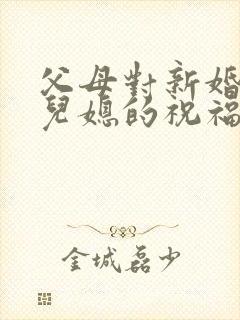 父母對新婚
兒媳的祝福
金城磊少